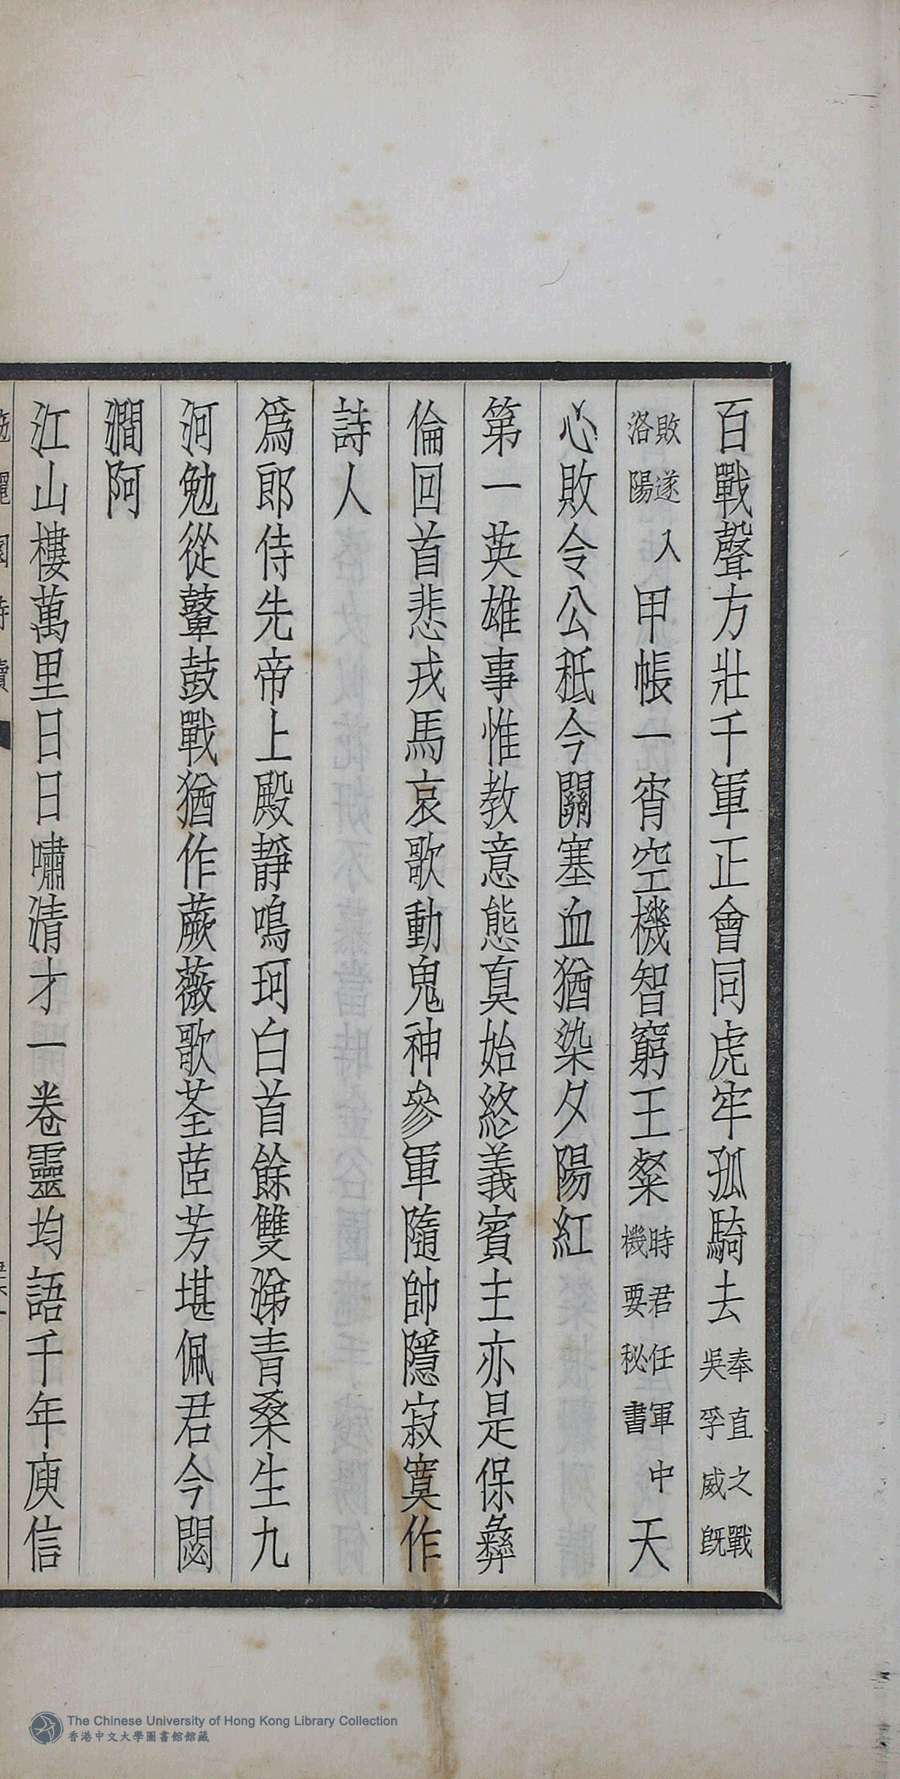 百戰聲方壯千軍正會同虎牢孤騎去奉直之戰吳孚威既
敗遂入洛陽甲帳一宵空機智窮王粲時君任軍中機要秘書天
心敗令公秖今關塞血猶染夕陽紅
第一英雄事惟教意態真始終義賓主亦是保彝
倫回首悲戎馬哀歌動鬼神參軍隨帥隱寂寞作
詩人
爲郎侍先帝上殿靜鳴珂白首餘雙涕青桑生九
河勉從鼙鼓戰猶作蕨薇歌荃茝芳堪佩君今閟
澗阿
江山樓萬里日日嘯清才一卷靈均語千年庾信
The Chinese University of Hong Kong Library Collection
香港中文大學圖書館館藏